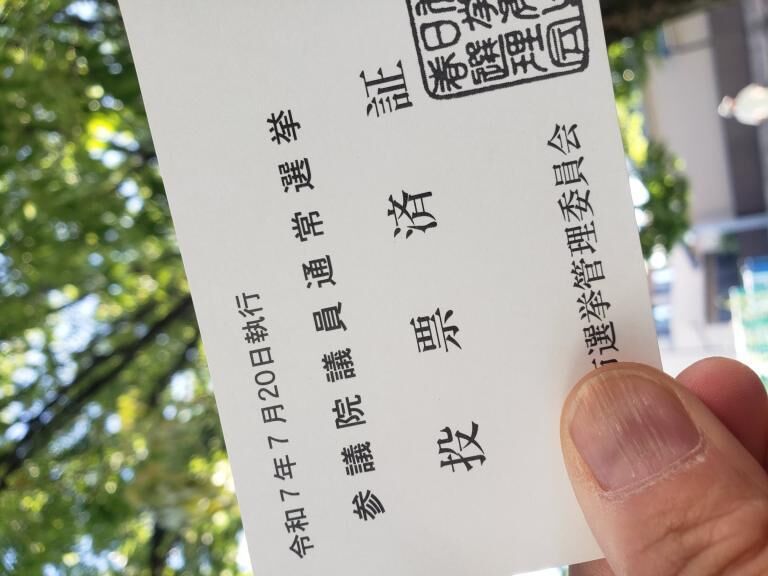 令和7年7月20日執行
参議院議員通常選挙
投票済証
市選挙管理委員会
春日
選挙
理